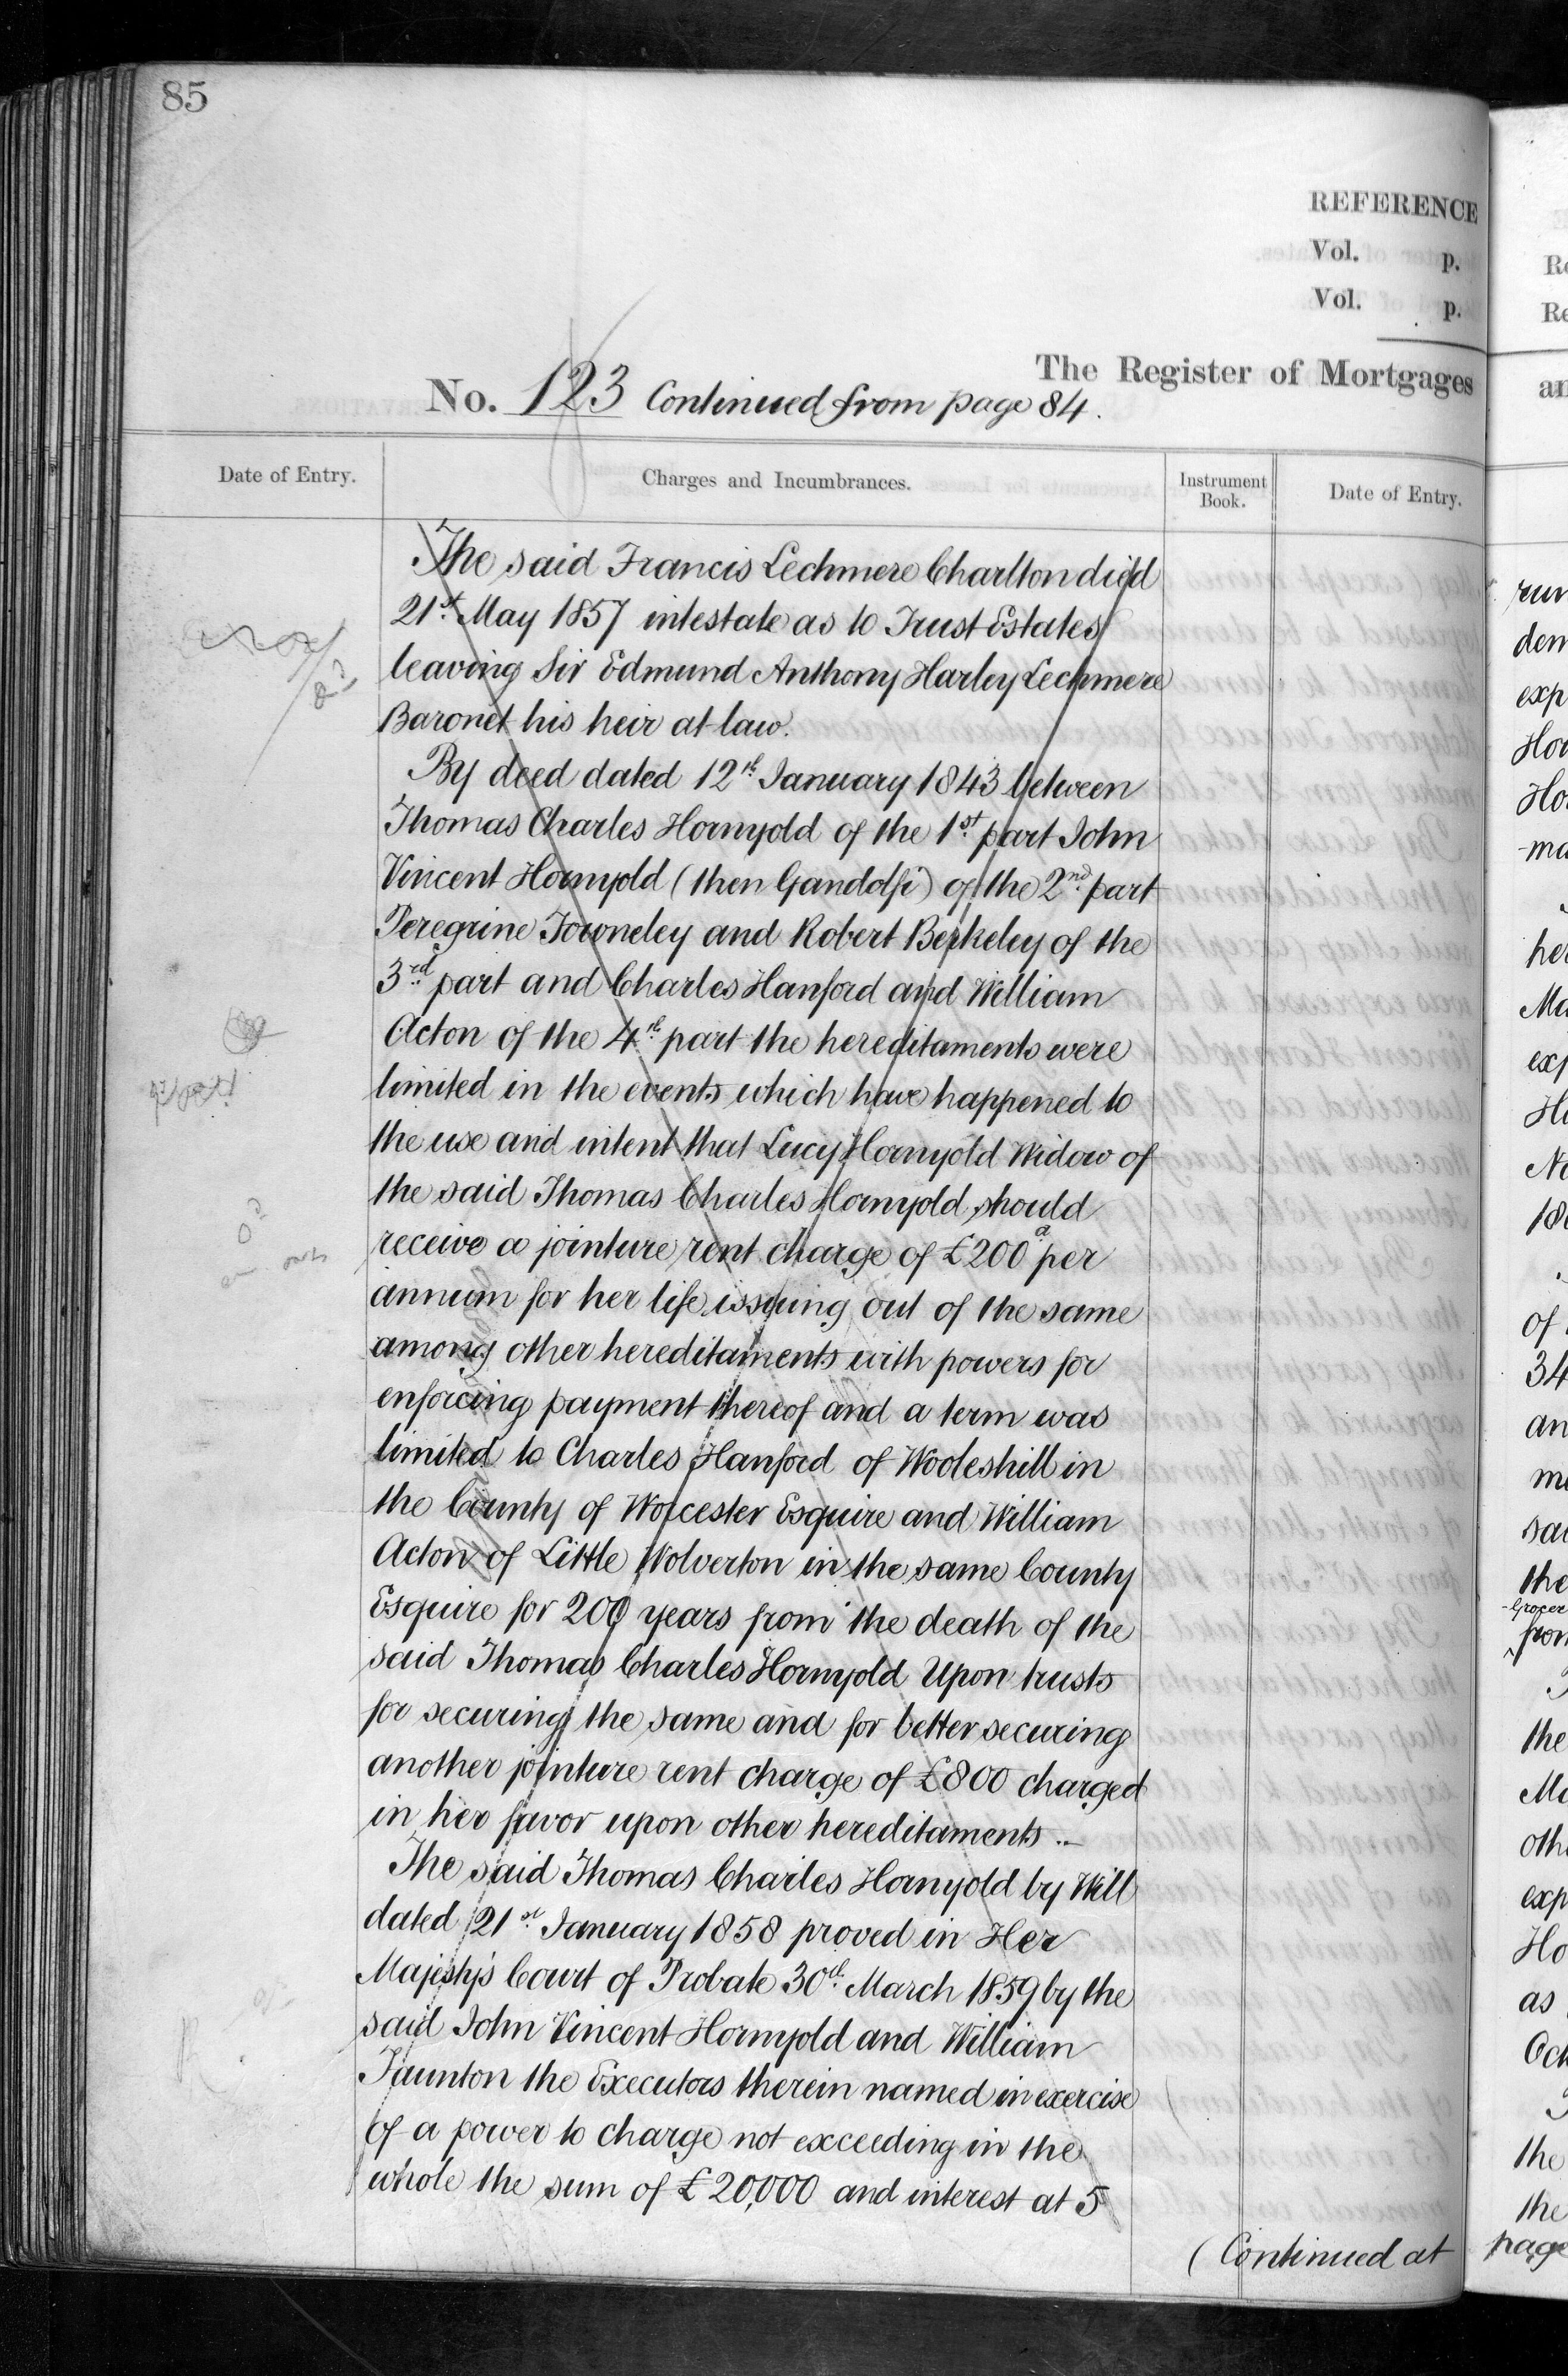 85
REFERENCE
Vol. p.
Vol. p.
The Register of Mortgages
No. 123 Continued from page 84.
Date of Entry.
Charges and Incumbrances.
Instrument Book.
Date of Entry.
The said Francis Lechmere Charlton died
21st May 1857 intestate as to Trust Estates
leaving Sir Edmund Anthony Harley Lechmere
Baronet his heir at law.
By deed dated 12th January 1843 between
Thomas Charles Hornyold of the 1st part John
Vincent Hornyold (then Gandolfi) of the 2nd part
Peregrine Towneley and Robert Berkeley of the
3rd part and Charles Hanford and William
Acton of the 4th part the hereditaments were
limited in the events which have happened to
the use and intent that Lucy Hornyold Widow of
the said Thomas Charles Hornyold should
receive a jointure rent charge of £200 a per
annum for her life issuing out of the same
among other hereditaments with powers for
enforcing payment thereof and a term was
limited to Charles Hanford of Wooleshill in
the County of Worcester Esquire and William
Acton of Little Wolverton in the same County
Esquire for 200 years from the death of the
said Thomas Charles Hornyold Upon trusts
for securing the same and for better securing
another jointure rent charge of £800 charged
in her favor upon other hereditaments ..
The said Thomas Charles Hornyold by Will
dated 21st January 1858 proved in Her
Majesty's Court of Probate 30th March 1859 by the
said John Vincent Hornyold and William
Taunton the Executors therein named in exercise
of a power to charge not exceeding in the
whole the sum of £20,000 and interest at 5
(Continued at page